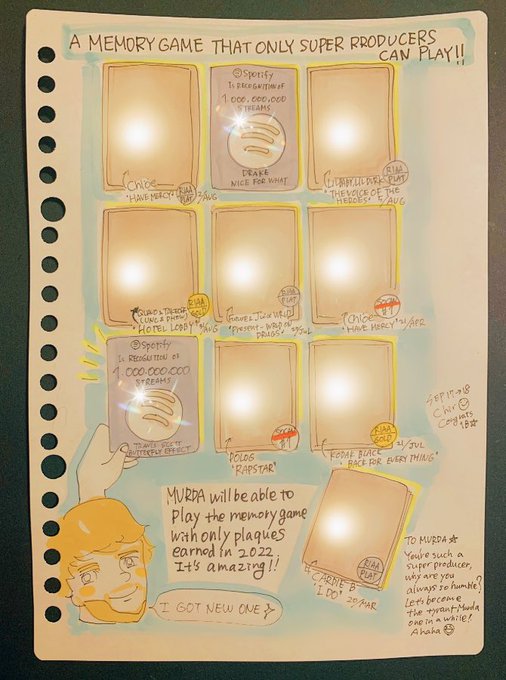 A MEMORY GAME THAT ONLY SUPER RRODUCERS
CAN PLAY!!
Chlöe
"HAVE MERCY"
RIAA
PLAT
2/AUG
Spotify
IS RECOGNITION OF
1.000.000.000
STREAMS
DRAKE
NICE FOR WHAT
LIL BABY, LIL DURK
"THE VOICE OF THE
HEROES" 5/AUG
RIAA
PLAT
QUAVO & TAKEOFF
"HOTEL LOBBY"
/AUG
RIAA
GOLD
FUTURE & JUICE WRLD
"Present - WRLD ON
DRUGS"
/JUL
RIAA
PLAT
Chlöe
"HAVE MERCY" 21/APR
Spotify
IS RECOGNITION OF
1.000.000.000
STREAMS
TRAVIS SCOTT
BUTTERFLY EFFECT
POLOG
"RAPSTAR"
KODAK BLACK
"BACK FOR EVERYTHING"
RIAA
GOLD
21/JUL
SEP 17→18
Congrats
MURDA will be able to
Play the memory game
with only plaques
earned in 2022.
It's amazing!!
I GOT NEW ONE
CARDIE-B
"I DO" 29/MAR
RIAA
PLAT
TO MURDA
You're such a
super producer,
why are you
always so humble?
Let's become
the tyrant Murda
one in a while!
Ahaha